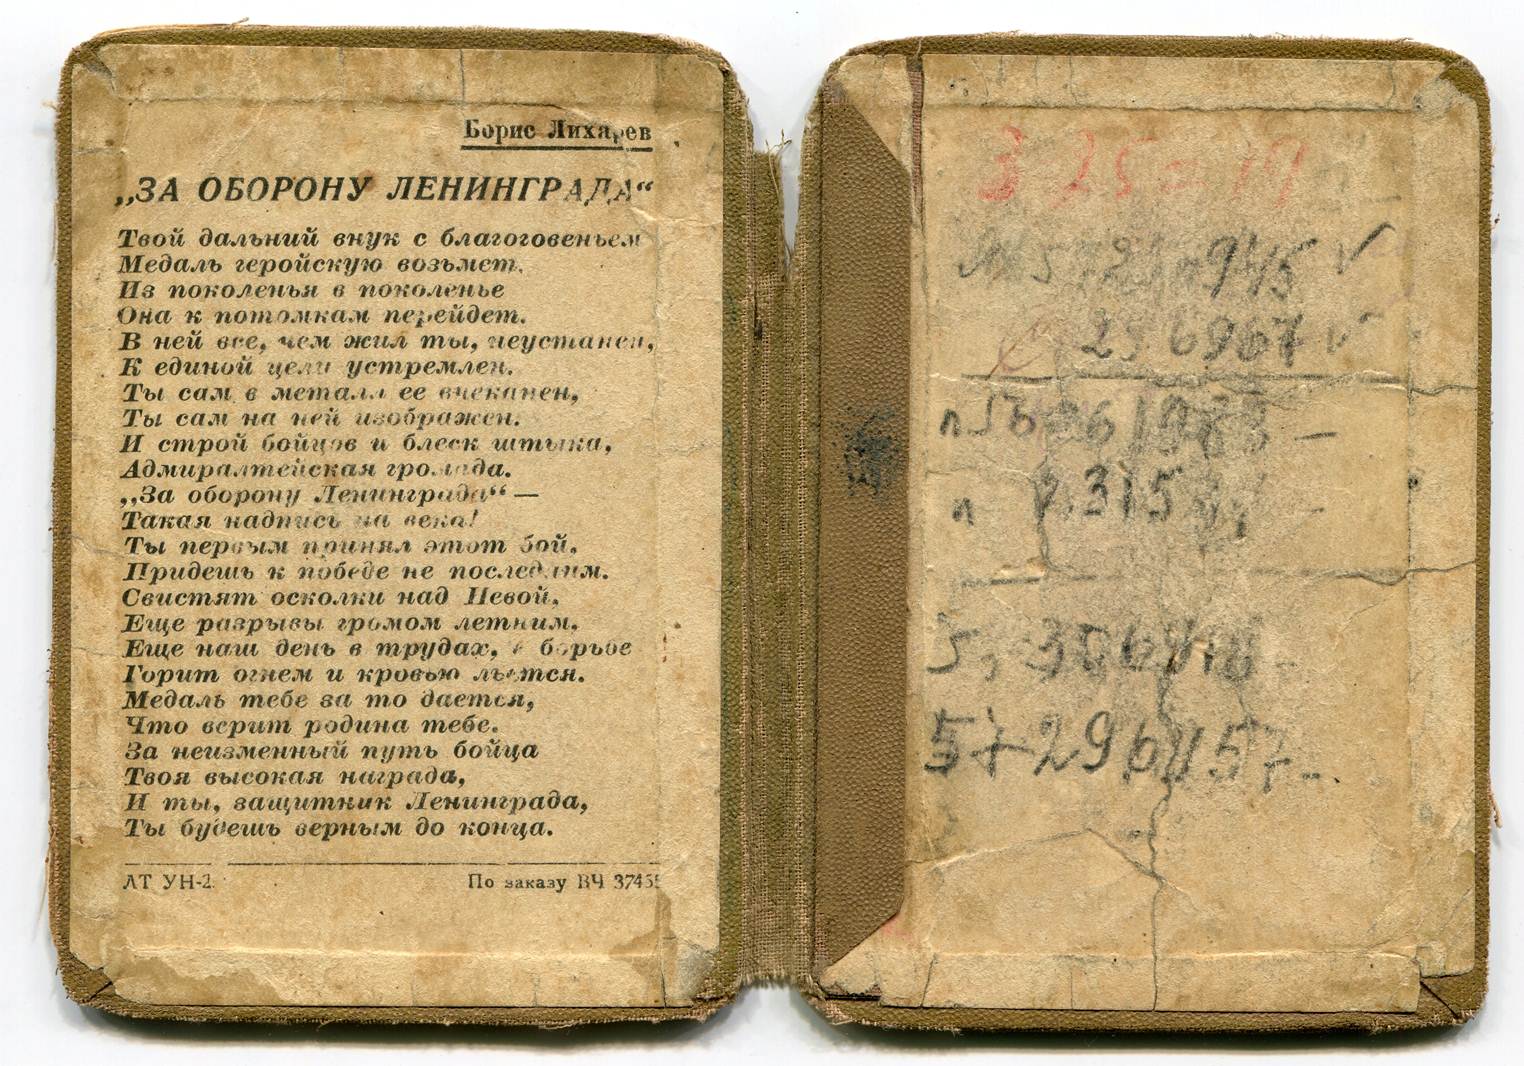 Борис Лихарев
„ЗА ОБОРОНУ ЛЕНИНГРАДА“
Твой дальний внук с благоговеньем
Медаль геройскую возьмет.
Из поколенья в поколенье
Она к потомкам перейдет.
В ней все, чем жил ты, неустанен,
К единой цели устремлен.
Ты сам в металл ее вчеканен,
Ты сам на ней изображен.
И строй бойцов и блеск штыка,
Адмиралтейская громада.
„За оборону Ленинграда“ —
Такая надпись на века!
Ты первым принял этот бой,
Придешь к победе не последним.
Свистят осколки над Невой,
Еще разрывы громом летним.
Еще наш день в трудах, в борьбе
Горит огнем и кровью льется.
Медаль тебе за то дается,
Что верит родина тебе.
За неизменный путь бойца
Твоя высокая награда,
И ты, защитник Ленинграда,
Ты будешь верным до конца.
ЛТ УН-2
По заказу ВЧ
3 25 =
945 ✓
296967 ✓
315
5
57 296457